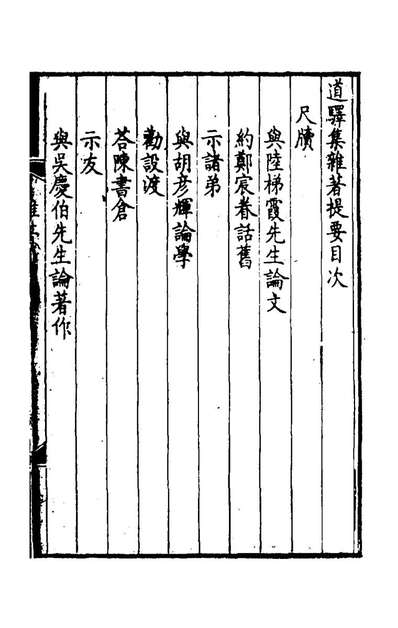 道驛集雜著提要目次
尺牘
與陸梯霞先生論文
約鄭宸眷話舊
示諸弟
與胡彦輝論學
勸設渡
答陳書倉
示友
與吳慶伯先生論著作